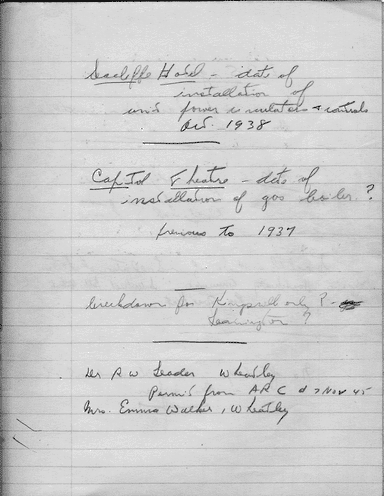 Seacliffe Hotel - date of
installation of
and power circulators & controls
Oct. 1938
Capitol Theatre - date of
installation of gas boiler?
previous to 1937
breakdown for Kingsville only? -
Leamington?
Dr R W Leader Wheatley
Permit from ARC d 7 Nov 45
Mrs. Emma Walker, Wheatley